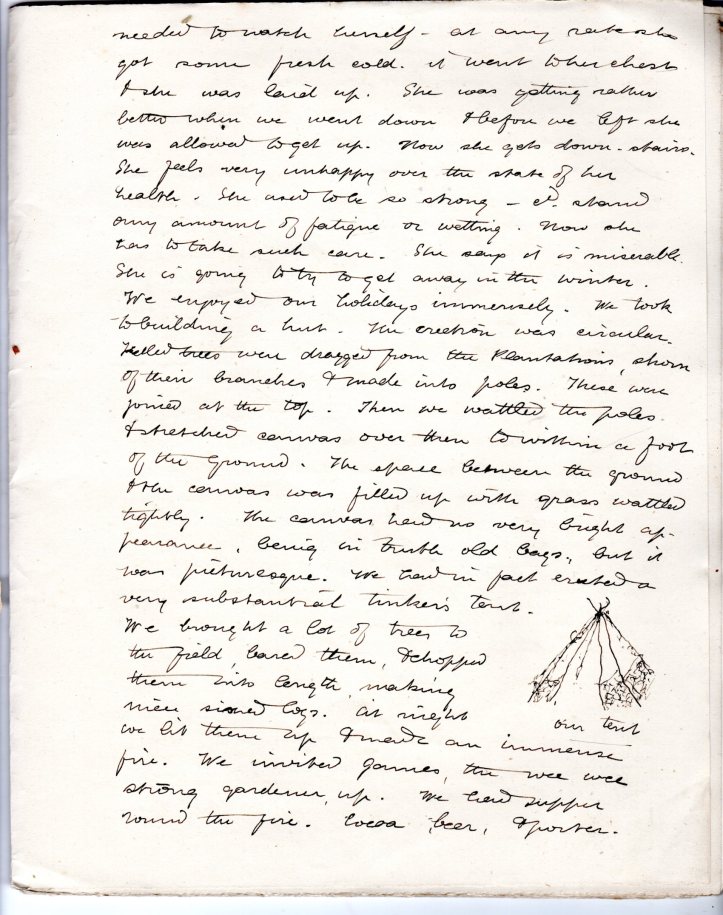 needed to watch herself - at any rate she
got some fresh cold. it went to her chest
& she was laid up. She was getting rather
better when we went down & before we left she
was allowed to get up. Now she gets down-stairs.
She feels very unhappy over the state of her
health. She used to be so strong - cd. stand
any amount of fatigue or wetting. Now she
has to take such care. She says it is miserable.
She is going to try to get away in the winter.
We enjoyed our holidays immensely. We took
to building a hut. The erection was circular.
Felled trees were dragged from the Plantations, shorn
of their branches & made into poles. These were
joined at the top. Then we wattled the poles
& stretched canvas over them to within a foot
of the ground. The space between the ground
& the canvas was filled up with grass wattled
tightly. The canvas had no very bright ap-
pearance, being in truth old bags, but it
was picturesque. We had in fact erected a
very substantial tinker's tent.
We brought a lot of trees to
the field, bared them, & chopped
them into length, making
nice sized logs. At night
our tent
we lit them up & made an immense
fire. We invited James, the wee wee
strong gardener, up. We had supper
round the fire. Cocoa, beer, & porter.